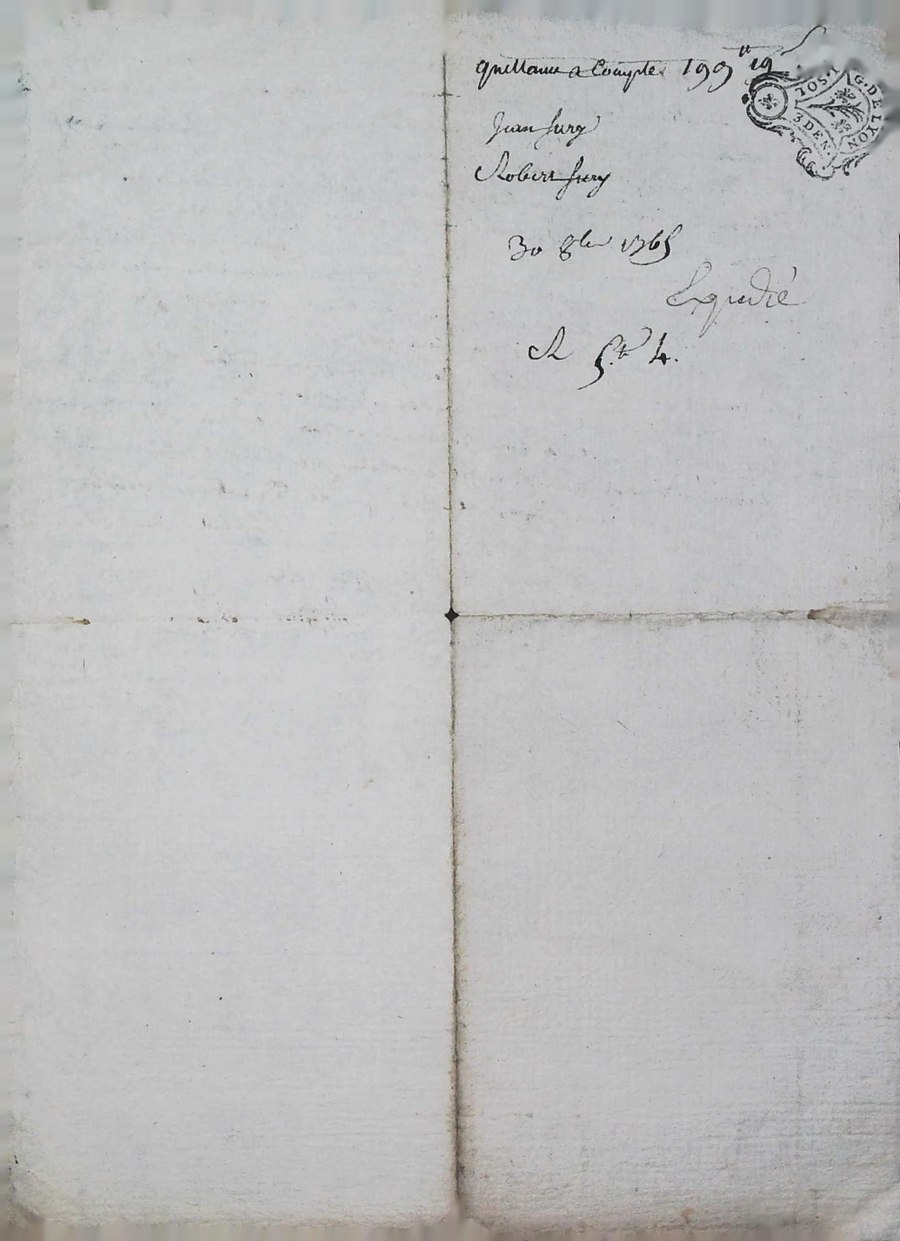 quittance a Compte 199ᵗᵗ 19ˢ
Jean Jury
Robert Jury
30 8bre 1765
Expedié
R 5ᵗᵗ 4.
G. DE LYON
10S.
3 DEN.